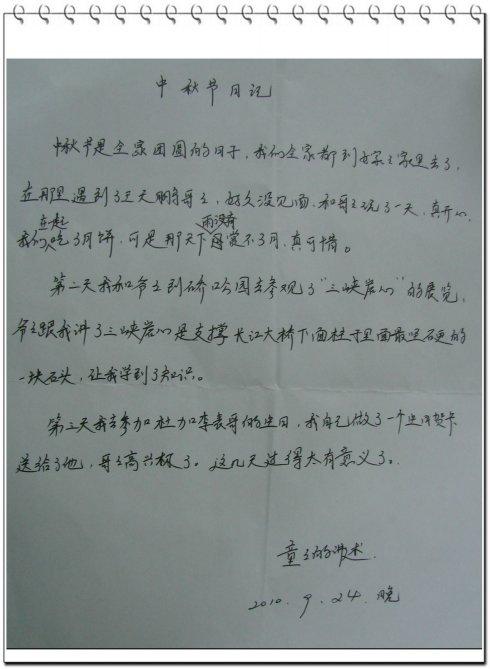 中秋节日记
中秋节是全家团圆的日子，我们全家都到家家家里去了，
在那里遇到了王天鹏哥哥，好久没见面，和哥哥玩了一天，真开心，
我们在一起吃了月饼，可是那天下雨没有赏不了月，真可惜。
第二天我和爷爷到硚口公园去参观了“三峡岩心”的展览，
爷爷跟我讲了三峡岩心是支撑长江大桥下面柱子里面最坚硬的
一块石头，让我学到了知识。
第三天我去参加杜加李表哥的生日，我自己做了一个生日贺卡
送给了他，哥哥高兴极了。这几天过得太有意义了。
童童的
2010.9.24.晚